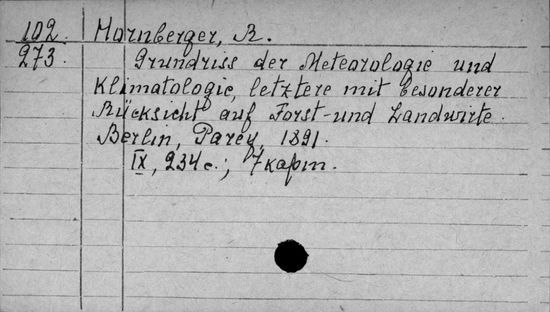 102. Hornberger, R.
273. Grundriss der Meteorologie und
Klimatologie, letztere mit besonderer
Rücksicht auf Forst- und Landwirte.
Berlin, Parey, 1891.
IX, 234 с.; 7 карт.